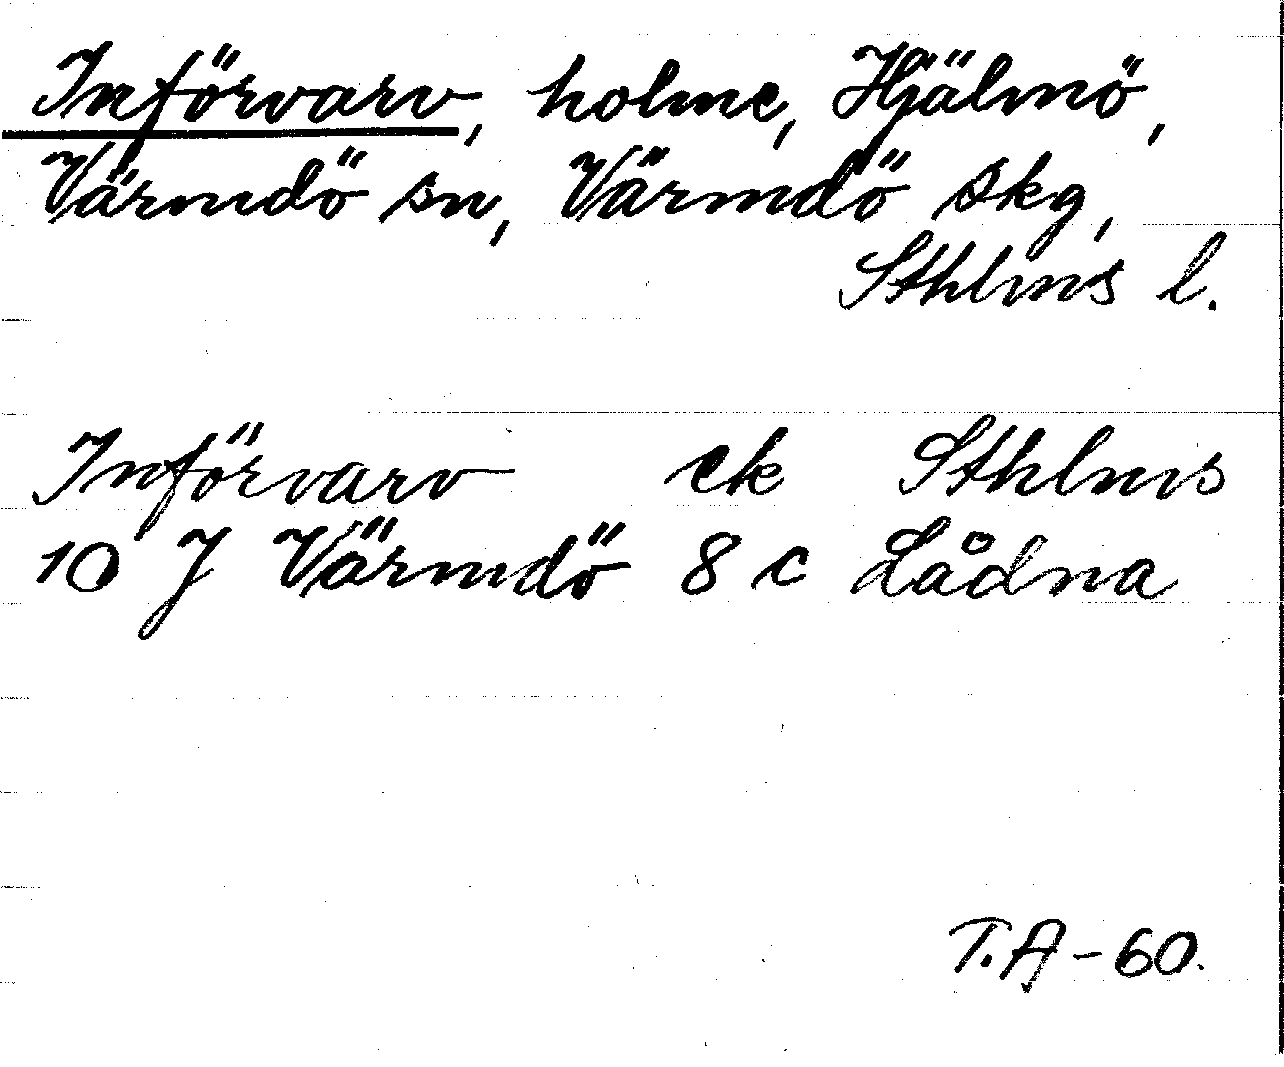 Införvarv, holme, Hjälmö,
Värmdö sn, Värmdö skg,
Sthlms l.
Införvarv ek Sthlms
10 J Värmdö 8 c Lådna
T.A-60.